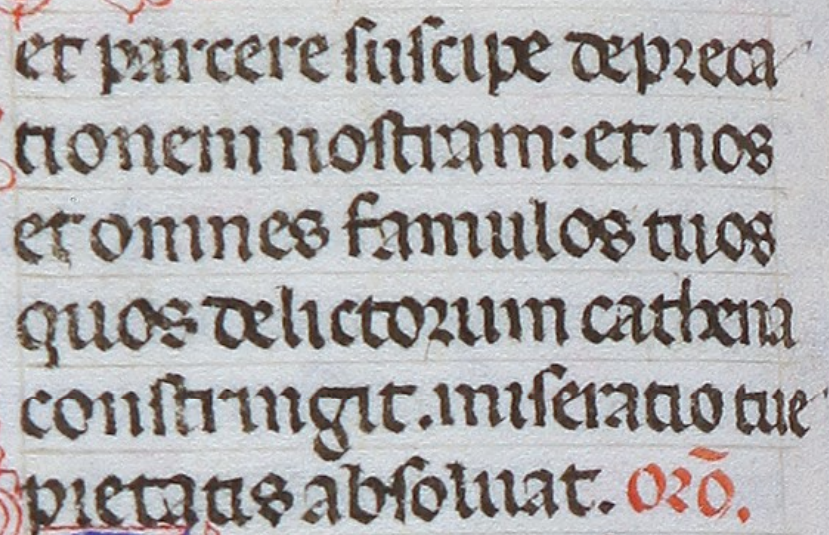 et parcere suscipe depreca
tionem nostram: et nos
et omnes famulos tuos
quos delictorum cathena
constringit. miseratio tue
pietatis absoluat. orō.